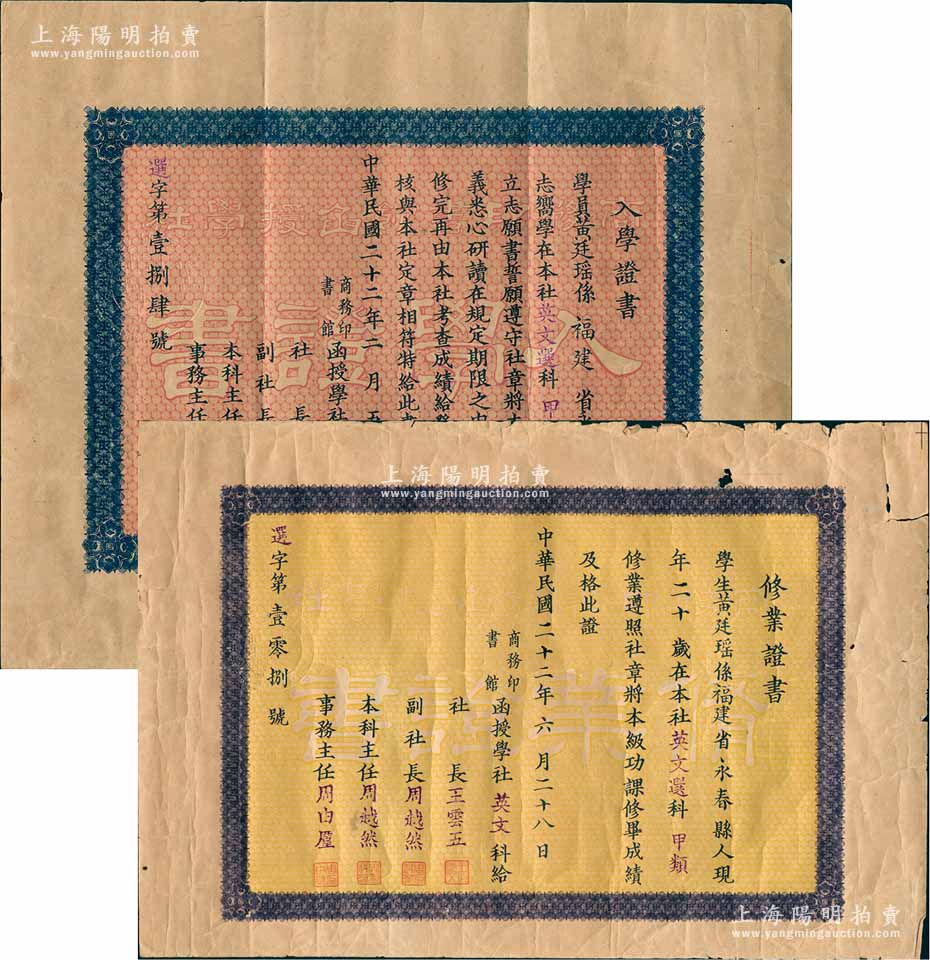 上海陽明拍賣
www.yangmingauction.com
入學證書
學員黃廷瑶係 福建 省永
志嚮學在本社英文選科 甲
立志願書誓願遵守社章將
義悉心研讀在規定期限之
修完再由本社考查成績給
核與本社定章相符特給此
中華民國二十二年二月五
商務印書館函授學社
社長
副社長
本科主任
事務主任
選字第壹捌肆號
入學證書
上海陽明拍賣
www.yangmingauction.com
修業證書
學生黃廷瑶係福建省永春縣人現
年二十歲在本社英文選科 甲類
修業遵照社章將本級功課修畢成績
及格此證
中華民國二十二年六月二十八日
商務印書館函授學社 英文 科給
社長王雲五
副社長周越然
本科主任周越然
事務主任周由廑
選字第壹零捌號
修業證書
上海陽明拍賣
www.yangmingauction.com